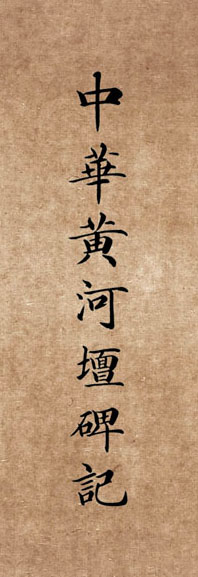 中華黄河壇碑記